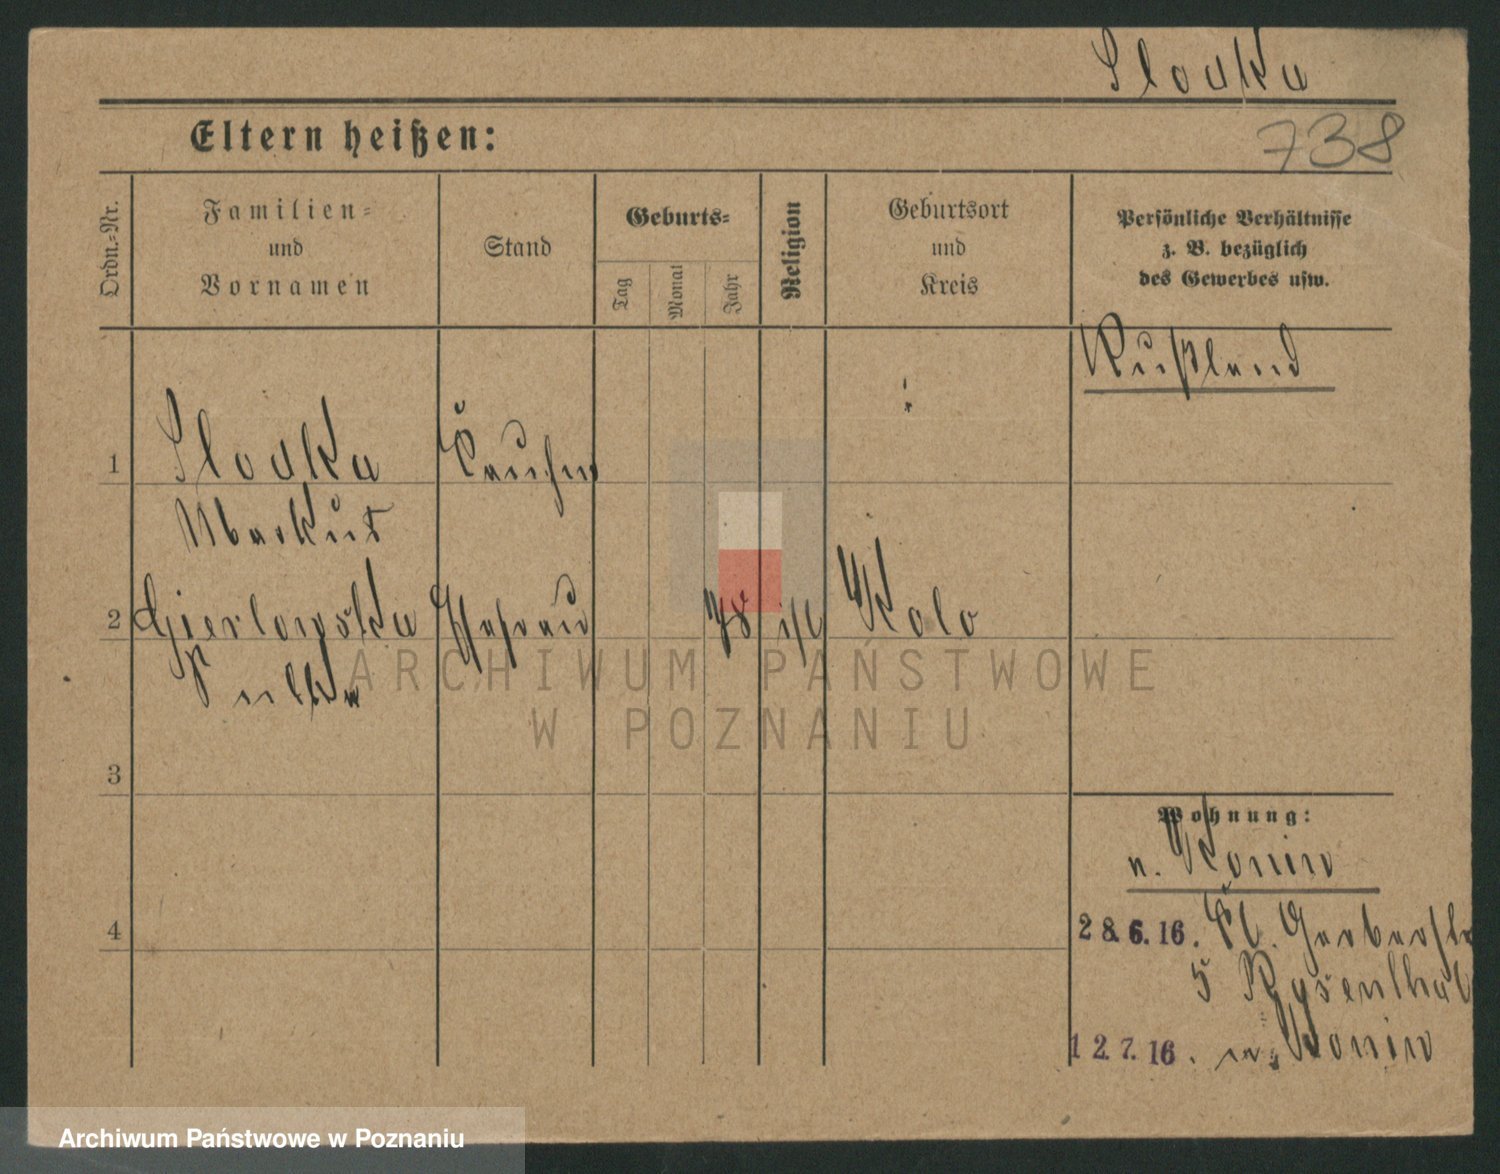 Slodka
738
Eltern heißen:
Ordn.-Nr.
Familien-
und
Vornamen
Stand
Geburts-
Tag
Monat
Jahr
Religion
Geburtsort
und
Kreis
Persönliche Verhältnisse
z. B. bezüglich
des Gewerbes usw.
Rußland
1
Slodka
Markus
2
Ehefrau
78
isr
Kolo
3
4
Wohnung:
n. Konin
28.6.16. Kl. Gerberstr
5
12.7.16. n. Konin
ARCHIWUM PAŃSTWOWE
W POZNANIU
Archiwum Państwowe w Poznaniu